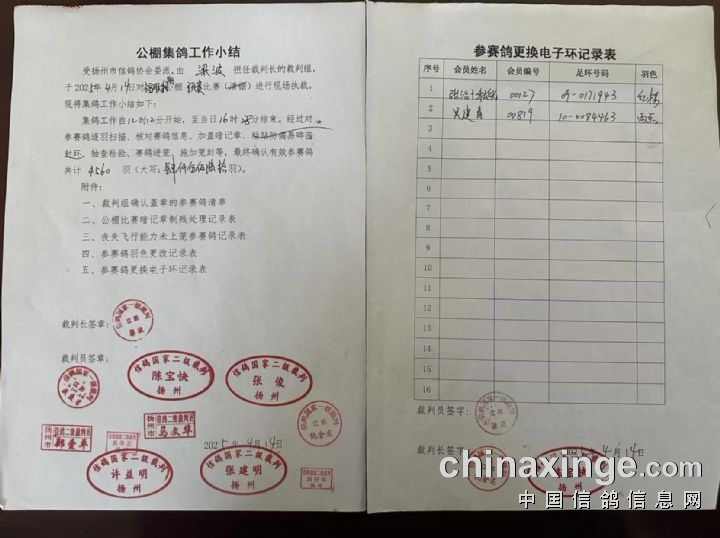 公棚集鸽工作小结
受扬州市信鸽协会委派，由 梁波 担任裁判长的裁判组，
于2025年4月14日对 公棚 比赛（清棚）进行现场执裁，
现将集鸽工作小结如下：
集鸽工作自12时12分开始，至当日16时 分结束。经过对
参赛鸽逐羽扫描、核对赛鸽信息、加盖暗记章、粘贴防偽易碎
封环、抽查检验、赛鸽进笼、施加笼封等，最终确认有效参赛鸽
共计 4560 羽（大写：肆仟伍佰陆拾羽）。
附件：
一、裁判组确认盖章的参赛鸽清单
二、公棚比赛暗记章制残处理记录表
三、丧失飞行能力未上笼参赛鸽记录表
四、参赛鸽羽色更改记录表
五、参赛鸽更换电子环记录表
裁判长签章：
信鸽国家一级裁判
江苏
梁波
裁判员签章：
信鸽国家二级裁判
陈宝快
扬州
信鸽国家二级裁判
张俊
扬州
扬州市
郝爱华
扬州市
马文华
江苏
2025年4月14日
信鸽国家二级裁判
许益明
扬州
信鸽国家二级裁判
张建明
扬州
参赛鸽更换电子环记录表
序号 会员姓名 会员编号 足环号码 羽色
1 00127 09-0171943
2 吴建青 00819 10-0084463
3
4
5
6
7
8
9
10
11
12
13
14
15
16
裁判员签字：
裁判长签字：
年4月14日
扬州
chinaxinge.com
中国信鸽信息网